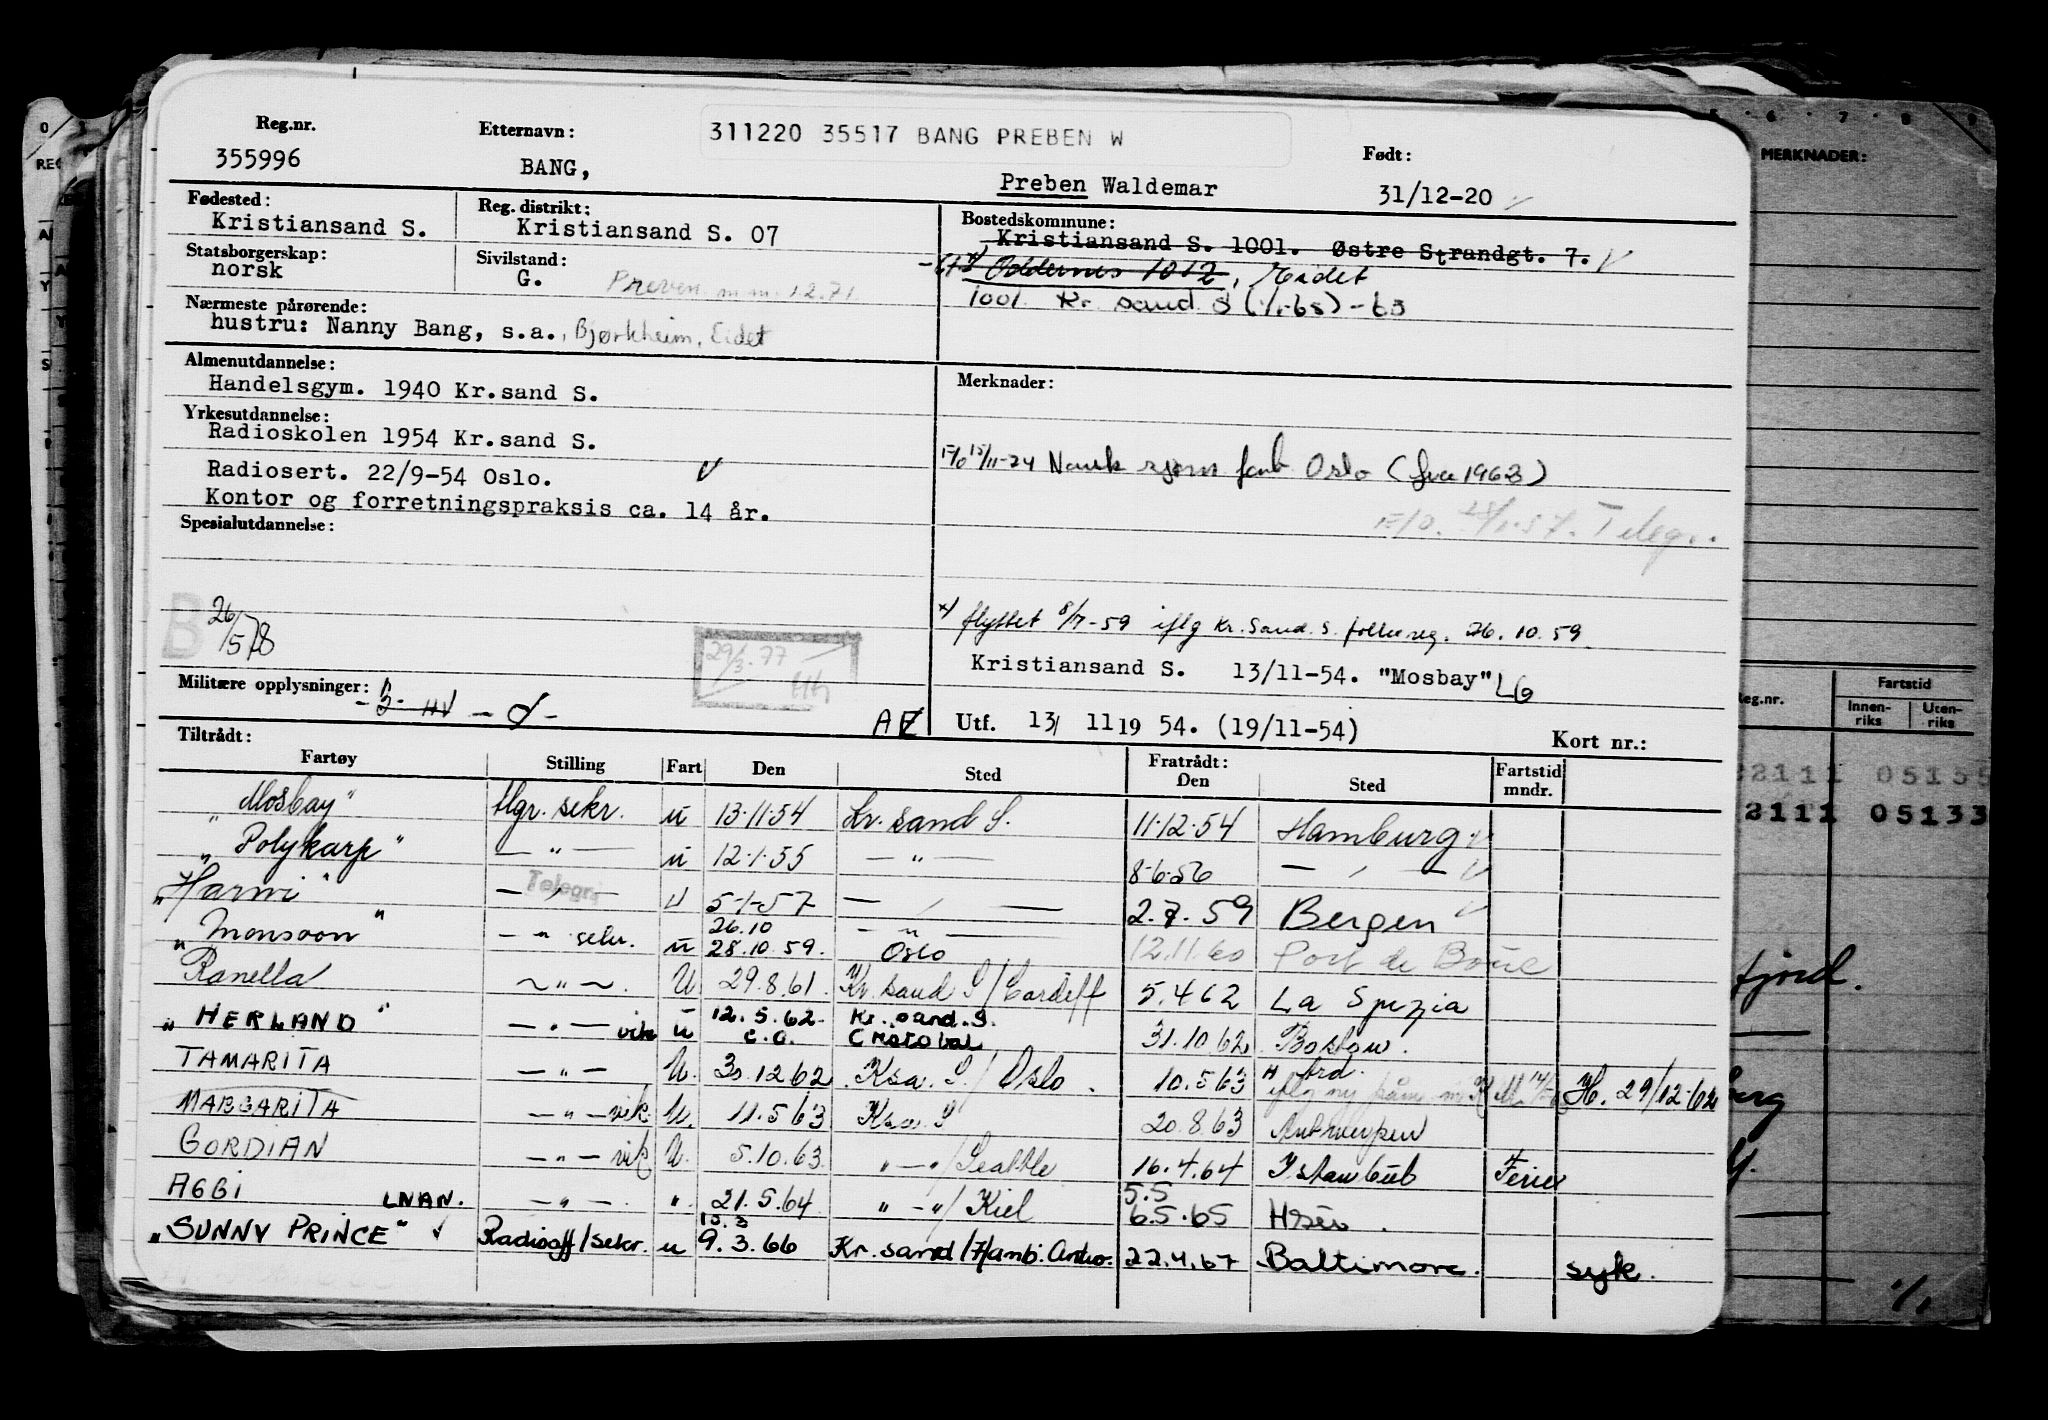 Reg.nr. Etternavn: 311220 35517 BANG PREBEN W Født:
355996 BANG, Preben Waldemar 31/12-20
Fødested: Reg. distrikt: Bostedskommune:
Kristiansand S. Kristiansand S. 07 Kristiansand S. 1001. Østre Strandgt. 7.
Statsborgerskap: Sivilstand: Oddernes 1012, Eidet
norsk G. Preven m.m. 12.71. 1001 Kr. sand S (1/1-65) - 63
Nærmeste pårørende:
hustru: Nanny Bang, s.a., Bjørkheim, Eidet
Almenutdannelse: Merknader:
Handelsgym. 1940 Kr.sand S.
Yrkesutdannelse:
Radioskolen 1954 Kr.sand S.
Radiosert. 22/9-54 Oslo. Norsk sjøm forb Oslo (fra 1963)
Kontor og forretningspraksis ca. 14 år.
Spesialutdannelse: Teleg.
B 26/5 78
x) flyttet 8/7-59 iflg Kr. Sand. S. folkereg. 26. 10. 59
29/3.77 Kristiansand S. 13/11-54. "Mosbay" LG
Militære opplysninger: HV
Utf. 13/ 11 19 54. (19/11-54) Kort nr.:
Tiltrådt: Fratrådt:
Fartøy Stilling Fart Den Sted Den Sted Fartstid mndr.
"Mosbay" tlgr. sekr. u 13.11.54 Kr. sand S. 11.12.54 Hamburg
"Polykarp" — " — u 12.1.55 — " — 8.6.56 — " —
"Harwi" — Telegr. — u 5-1-57 — " — 2.7.59 Bergen
"Monsoon" — " sekr. u 26.10 28.10.59. — " — Oslo 12.11.60 Port de Bouc
Ranella — " — U 29.8.61 Kr. sand S/Cardiff 5.4.62 La Spezia
"HERLAND" — " — vik u 12.5.62 e.o. Kr. sand. S. Cristobal 31.10.62 Boston.
TAMARITA — " — U. 30.12.62 Ksa. S./Oslo. 10.5.63 H. 29/12-62
MARGARITA — " — vik. U. 11.5.63 Ksa. S 20.8.63 Antwerpen
GORDIAN — " — vik U. 5.10.63 " — "/Seattle 16.4.64 Istanbul Ferie
AGGI LNAN. — " — ". 21.5.64 " — "/Kiel 5.5 6.5.65
"SUNNY PRINCE" Radiooff/sekr. u 15.3 9.3.66 Kr. sand/Hamb. 22.4.67 Baltimore. syk.
MERKNADER:
Reg.nr. Fartstid
Innenriks Utenriks
22111 05155
2111 05133
fjord.